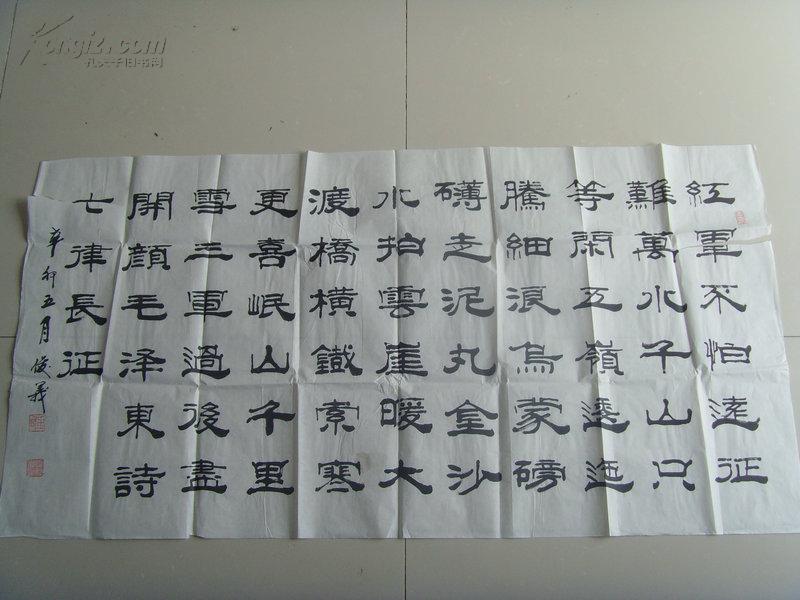 紅軍不怕遠征
難萬水千山只
等閑五嶺逶迤
騰細浪烏蒙磅
礴走泥丸金沙
水拍雲崖暖大
渡橋橫鐵索寒
更喜岷山千里
雪三軍過後盡
開顏毛泽東詩
七律長征
辛卯五月俊義
Kongfz.com
孔夫子旧书网